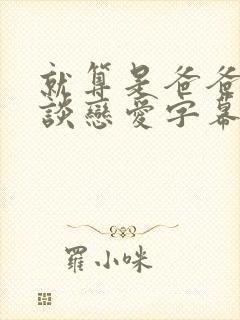 就算是爸爸
談戀愛字幕
羅小咪